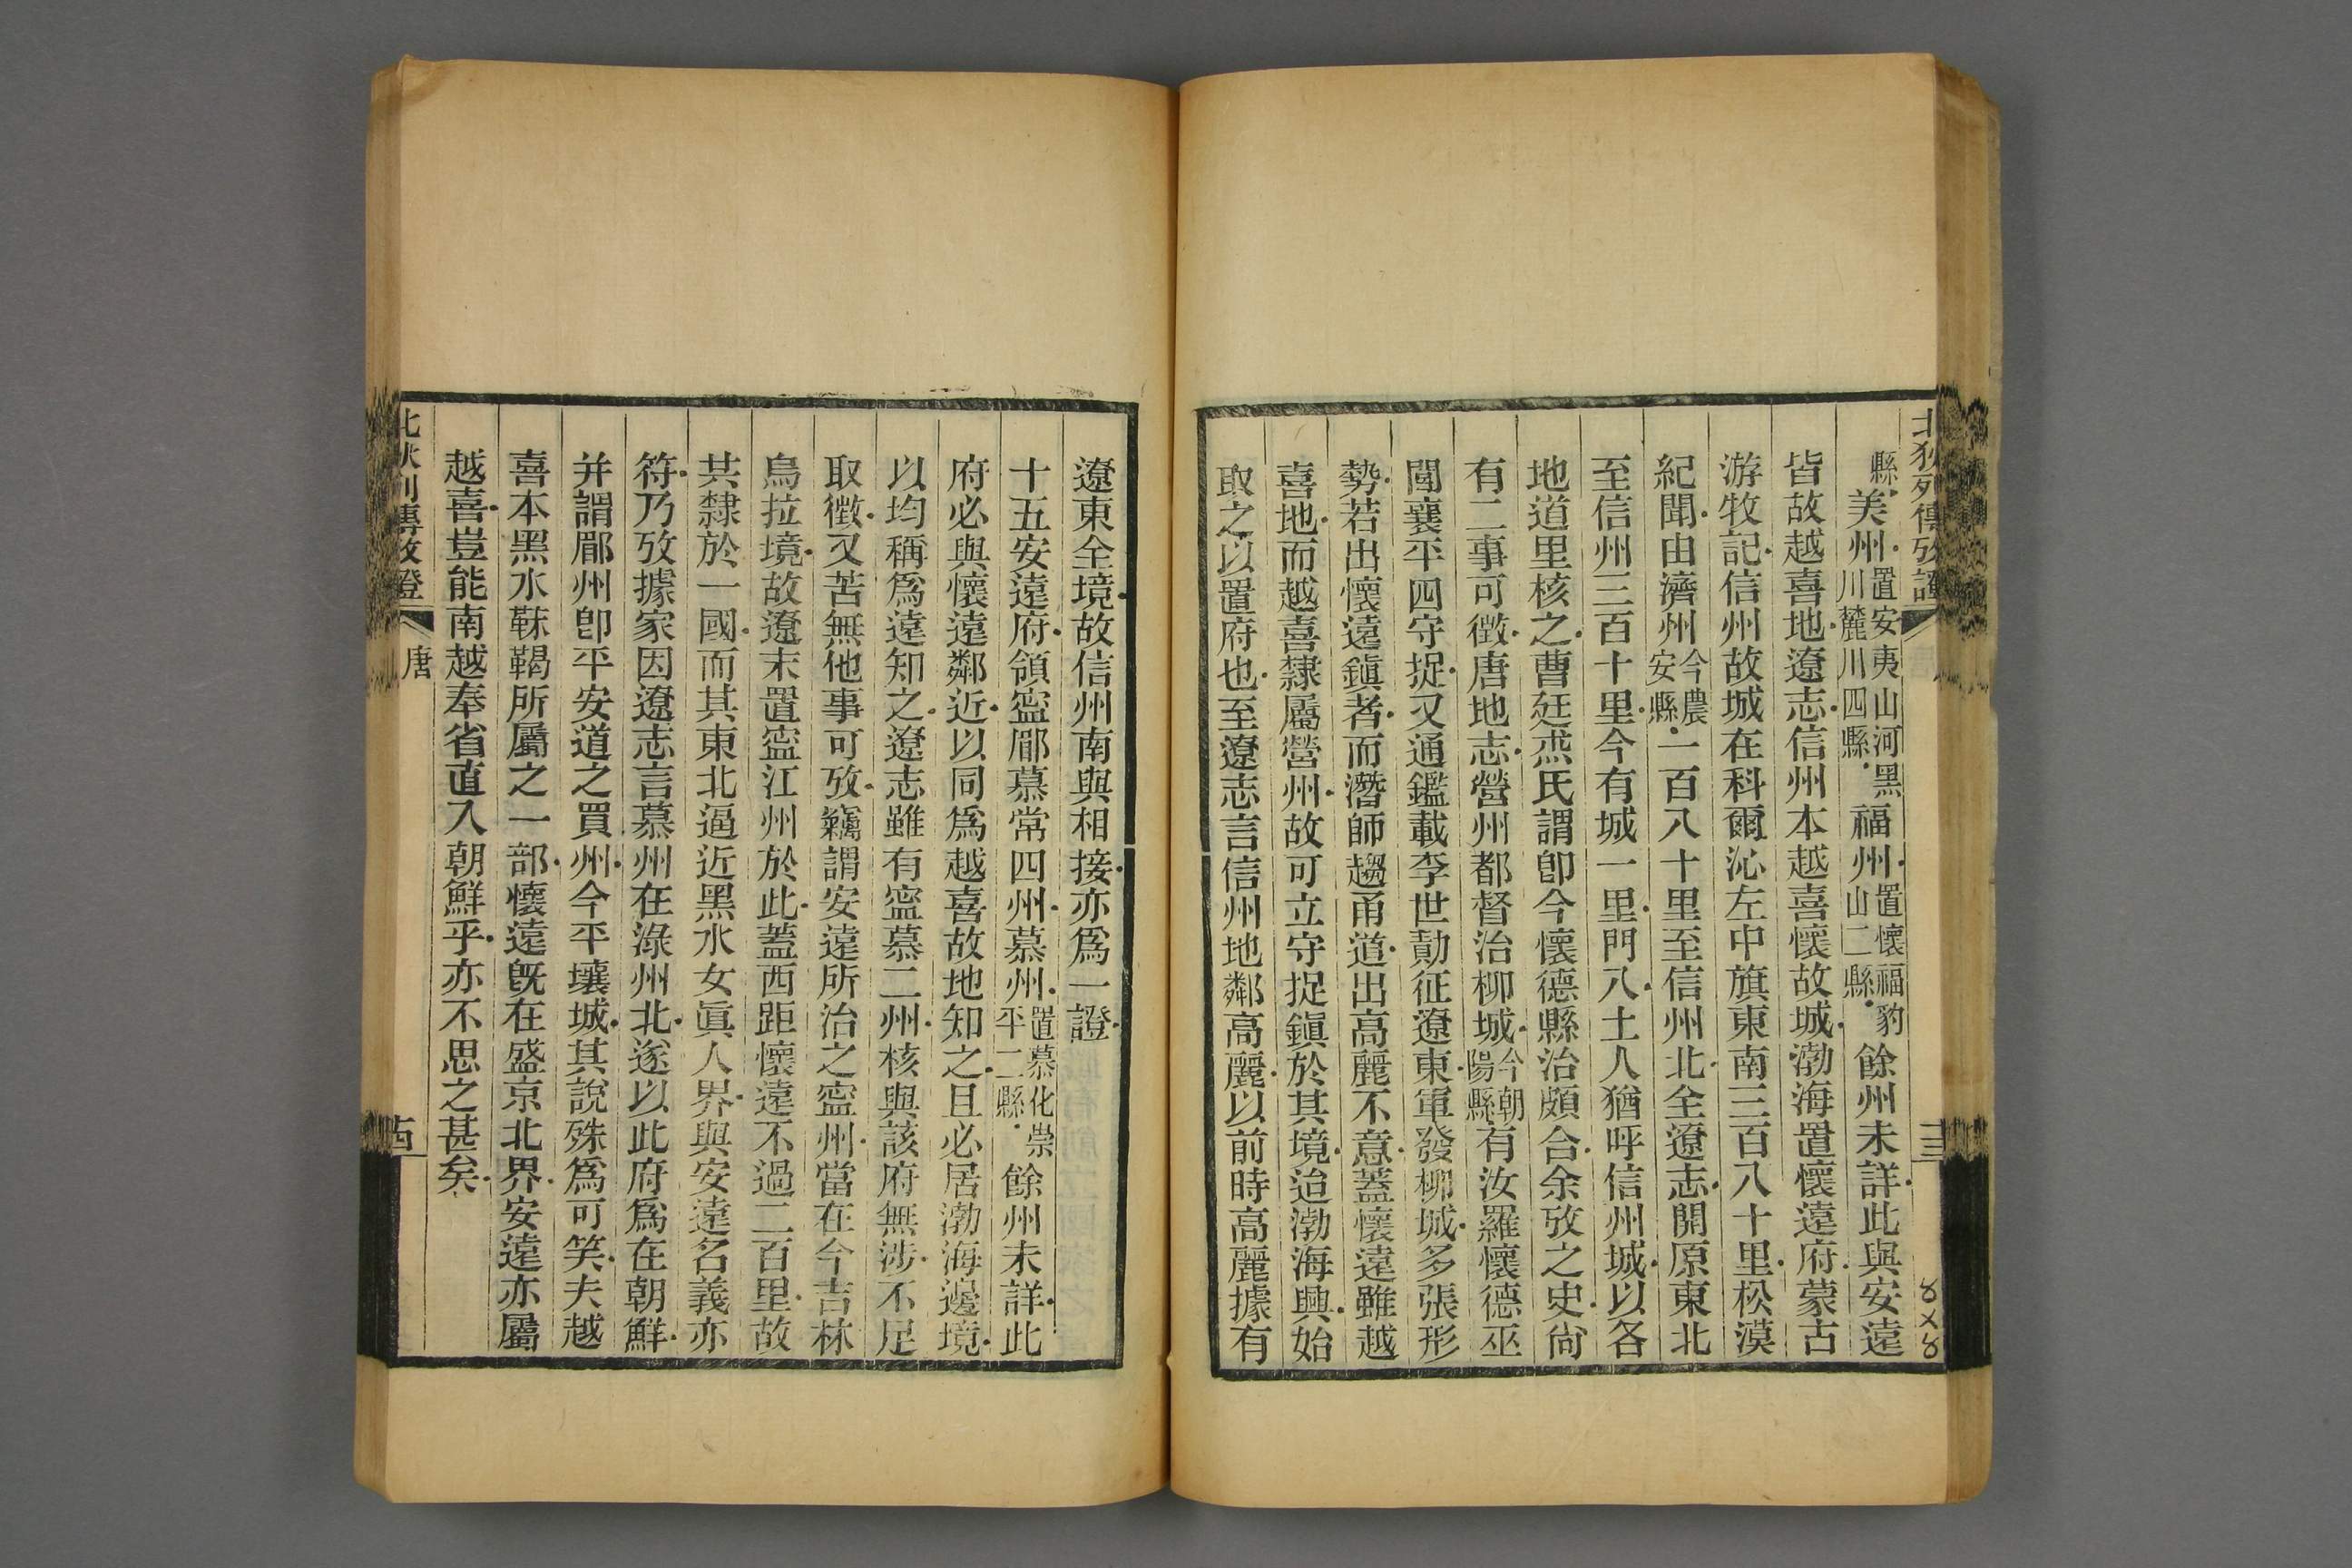 北狄列傳攷證
縣美州置安夷山河黑川麓川四縣福州置懷福豹山二縣餘州未詳此與安遠
皆故越喜地遼志信州本越喜懷故城渤海置懷遠府蒙古
游牧記信州故城在科爾沁左中旗東南三百八十里松漠
紀聞由濟州今農安縣一百八十里至信州北全遼志開原東北
至信州三百十里今有城一里門八土人猶呼信州城以各
地道里核之曹廷杰氏謂卽今懷德縣治頗合余攷之史尙
有二事可徵唐地志營州都督治柳城今朝陽縣有汝羅懷德巫
閭襄平四守捉又通鑑載李世勣征遼東軍發柳城多張形
勢若出懷遠鎭者而潛師趨甬道出高麗不意蓋懷遠雖越
喜地而越喜隸屬營州故可立守捉鎭於其境迨渤海興始
取之以置府也至遼志言信州地鄰高麗以前時高麗據有
十三
8×8
遼東全境故信州南與相接亦爲一證
十五安遠府領寍郿慕常四州慕州置慕化崇平二縣餘州未詳此
府必與懷遠鄰近以同爲越喜故地知之且必居渤海邊境
以均稱爲遠知之遼志雖有寍慕二州核與該府無涉不足
取徵又苦無他事可攷竊謂安遠所治之寍州當在今吉林
烏拉境故遼末置寍江州於此蓋西距懷遠不過二百里故
共隸於一國而其東北逼近黑水女眞人界與安遠名義亦
符乃攷據家因遼志言慕州在淥州北遂以此府爲在朝鮮
并謂郿州卽平安道之買州今平壤城其說殊爲可笑夫越
喜本黑水靺鞨所屬之一部懷遠旣在盛京北界安遠亦屬
越喜豈能南越奉省直入朝鮮乎亦不思之甚矣
北狄列傳攷證
唐